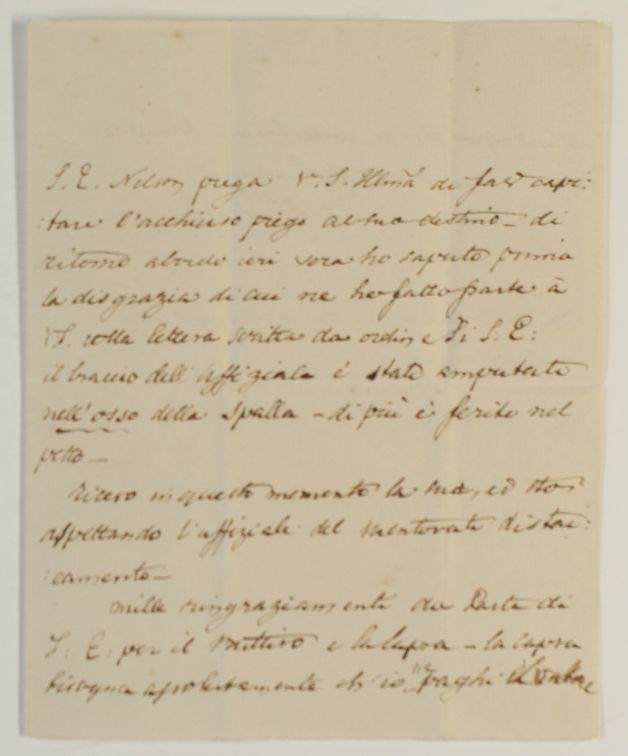 S. E. Nelson prega V. S. Illma di far capi:
:tare l'acchiuso piego al suo destino _ di
ritorno abordo ieri sera ho saputo prima
la disgrazia di cui ne ho fatto parte à
V S. colla lettera scritta da ordine di S. E:
il braccio dell' Uffiziale è stato amputato
nell' osso della spalla - di più è ferito nel
petto _
ricevo in questo momento la sua, ed sto
aspettando l'uffiziale del mentovato distac:
:camento _
mille ringraziamenti da Parte di
S: E: per il Buttiro e la capra - la capra
bisogna apsolutamente ch' io ne paghi il valore